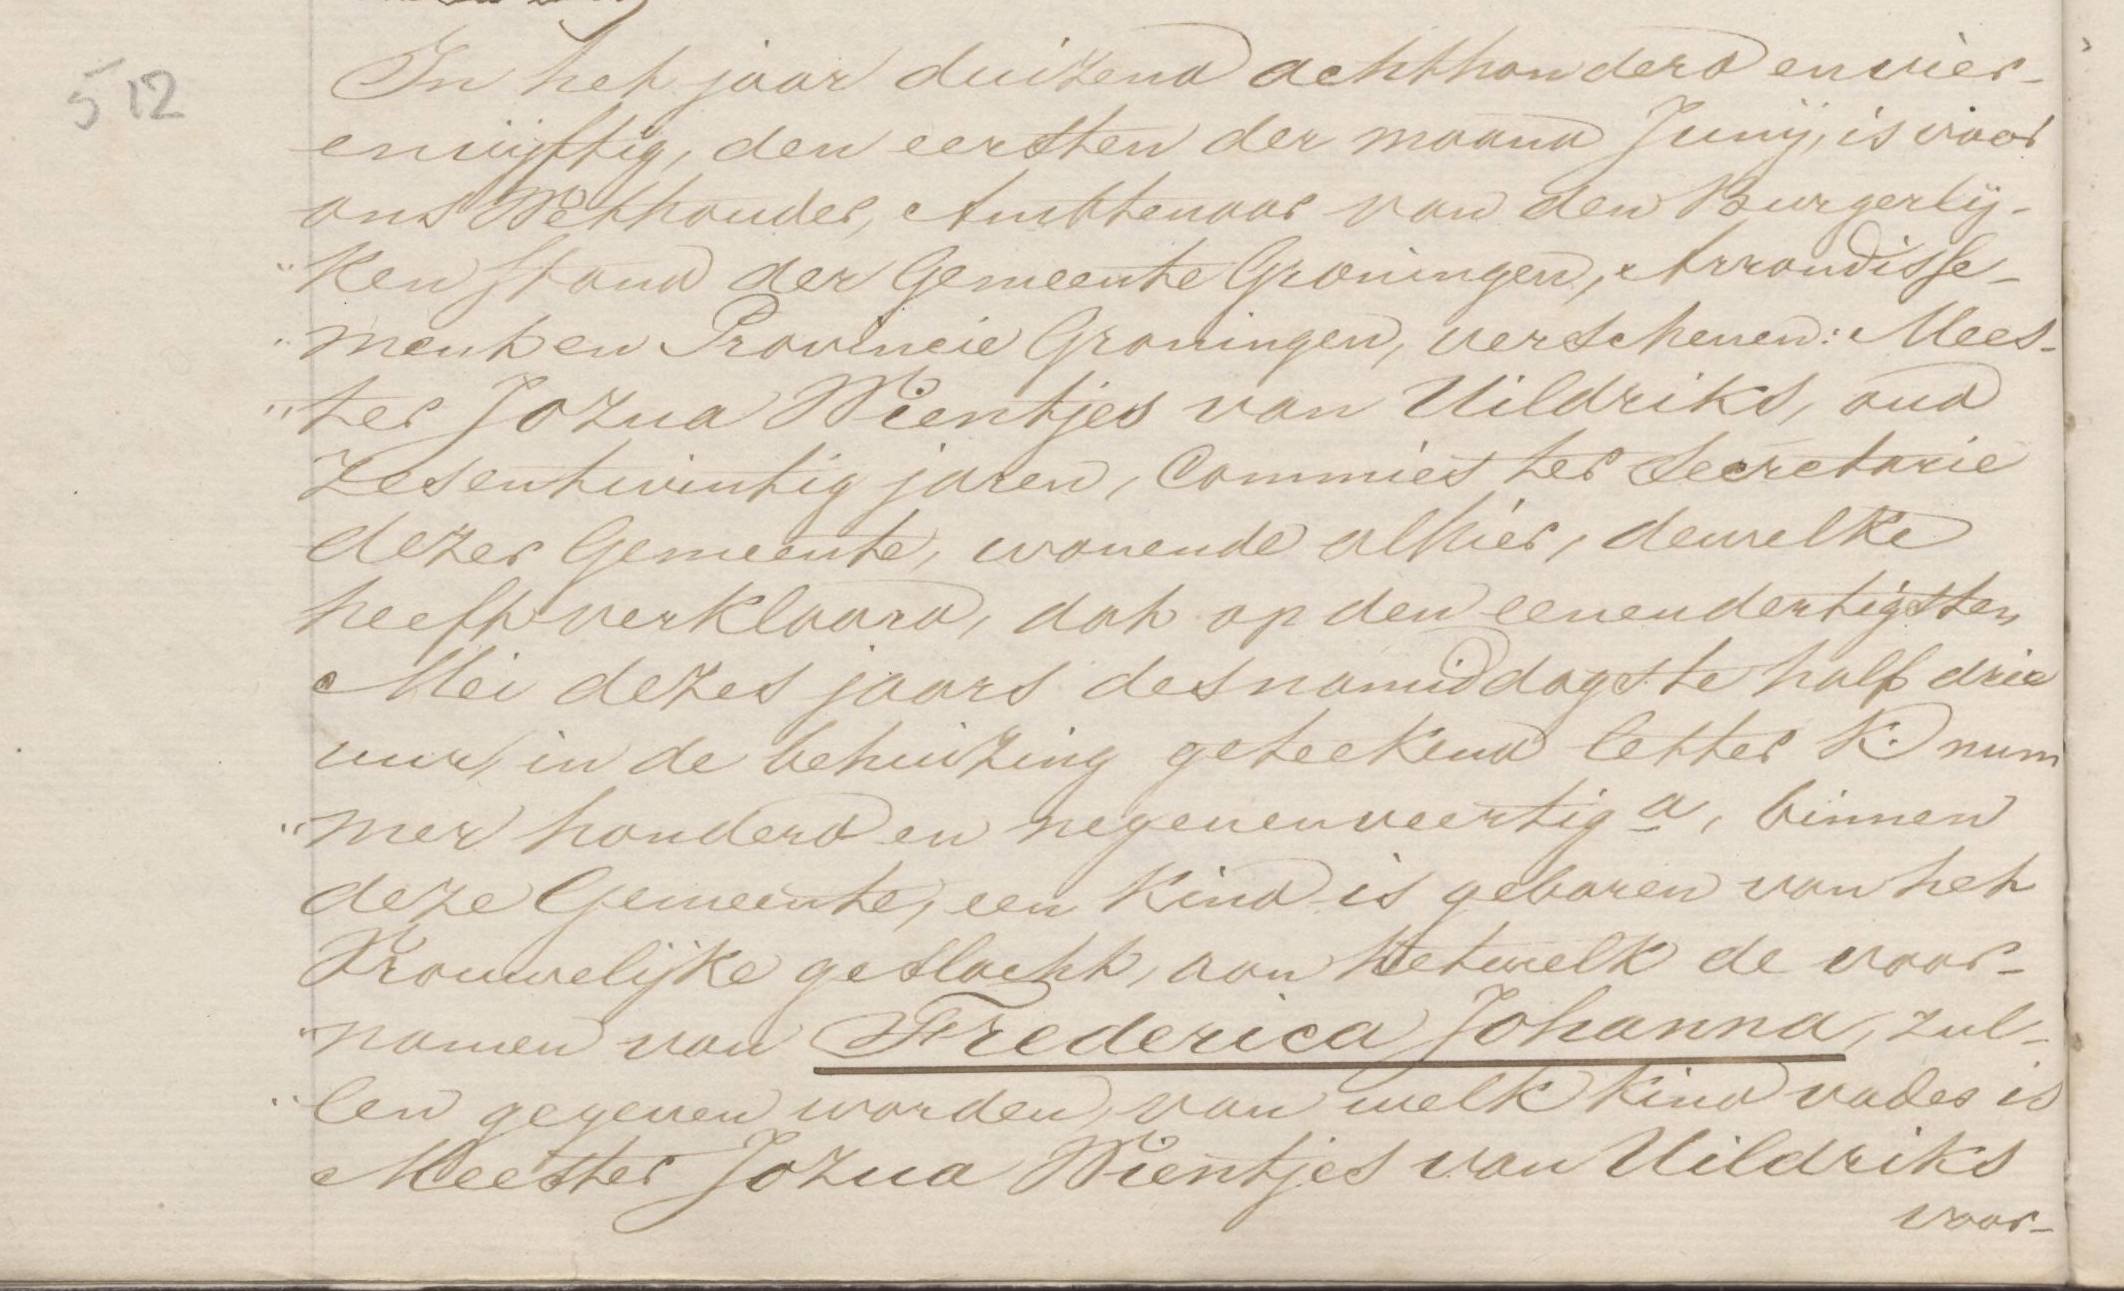 512
In het jaar duizend achthonderd en vier-
envijftig, den eersten der maand Junij, is voor
ons Wethouder, Ambtenaar van den Burgerlij-
" ken Stand der Gemeente Groningen, Arrondisse-
" ment en Provincie Groningen, verschenen: Mees-
" ter Jozua Wientjes van Uildriks, oud
zesentwintig jaren, Commies ter Secretarie
dezer Gemeente, wonende alhier, dewelke
heeft verklaard, dat op den eenendertigsten
Mei dezes jaars des namiddags te half drie
uur, in de behuizing geteekend letter K. num
" mer honderd en negenenveertig a, binnen
deze Gemeente, een kind is geboren van het
Vrouwelijke geslacht, aan hetwelk de voor-
" namen van Frederica Johanna, zul-
" len gegeven worden, van welk kind vader is
Meester Jozua Wientjes van Uildriks
voor-